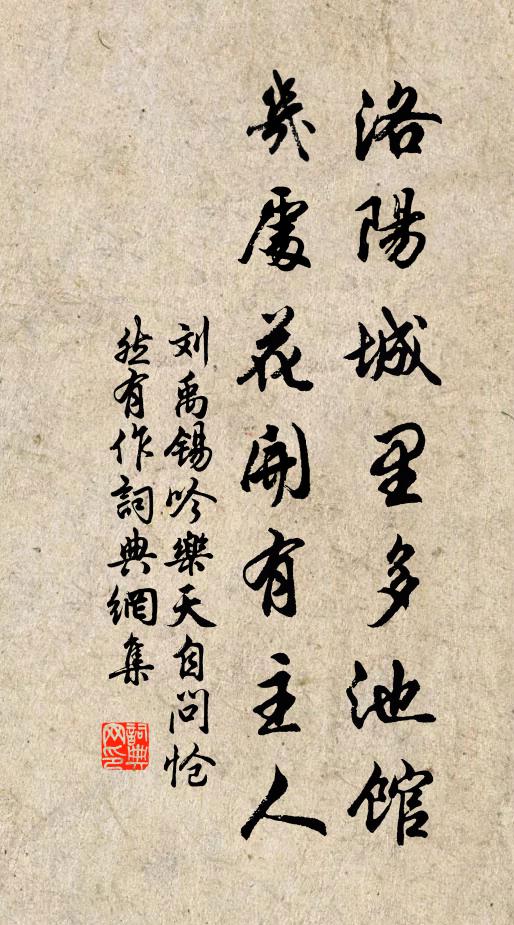 洛陽城里多池館
幾處花開有主人
刘禹锡吟樂天自問怆
然有作詞典網集
詞典
网印